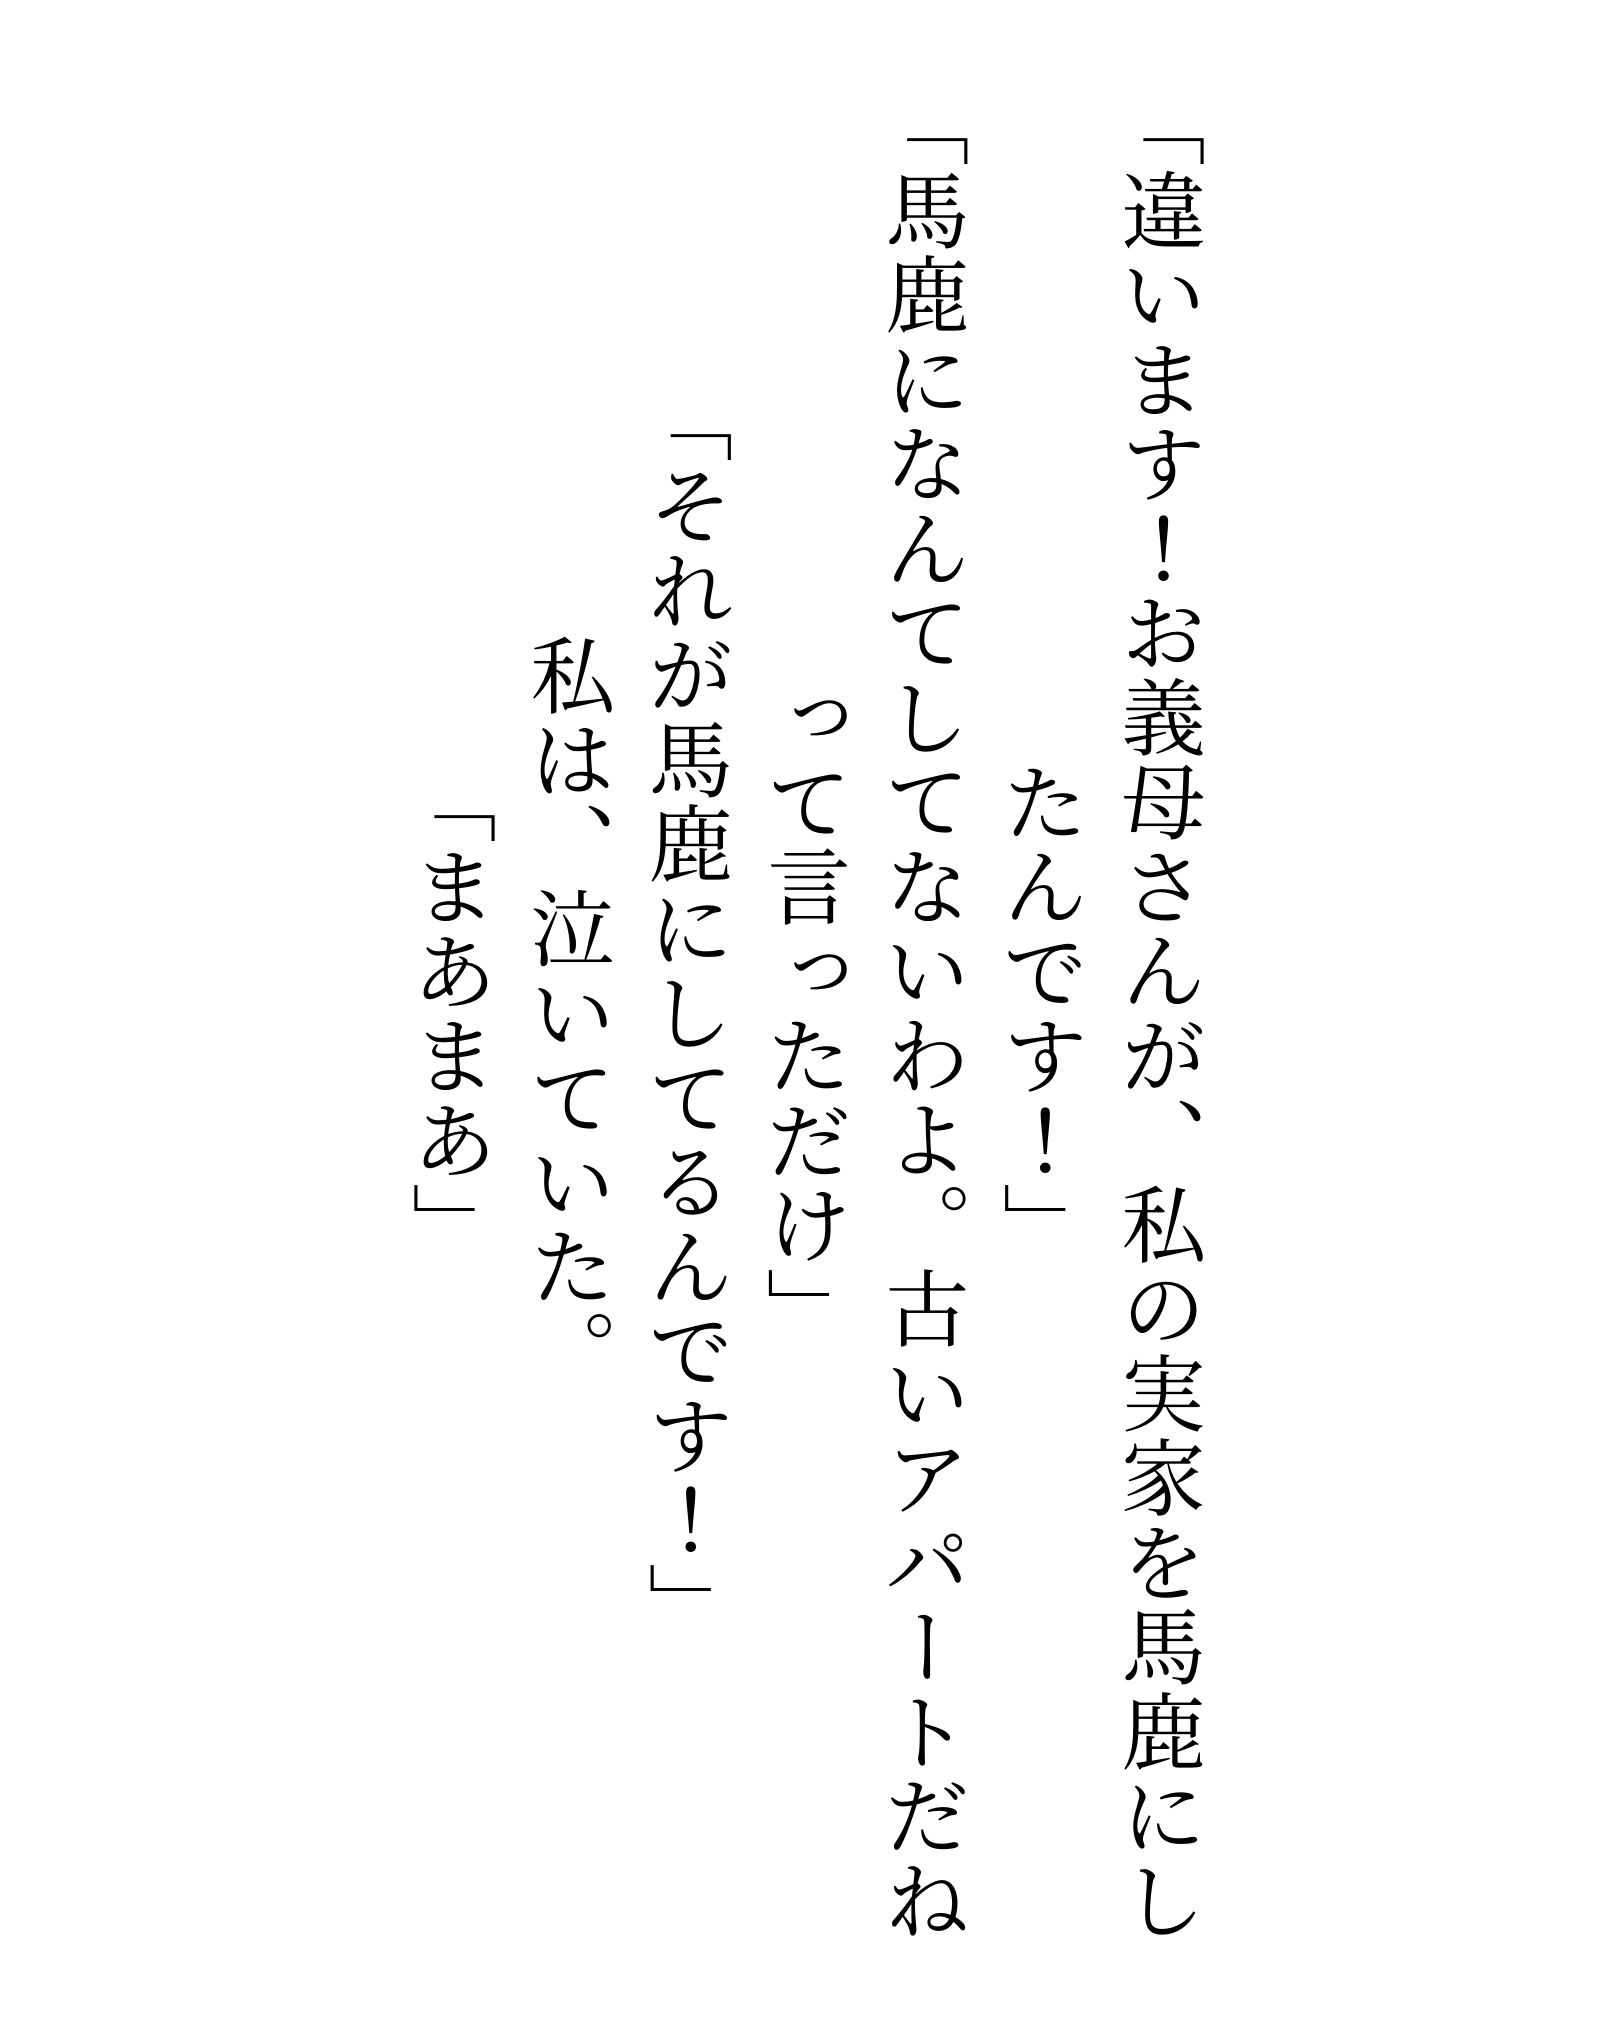 「違います！お義母さんが、私の実家を馬鹿にし
たんです！」
「馬鹿になんてしてないわよ。古いアパートだね
って言っただけ」
「それが馬鹿にしてるんです！」
私は、泣いていた。
「まあまあ」